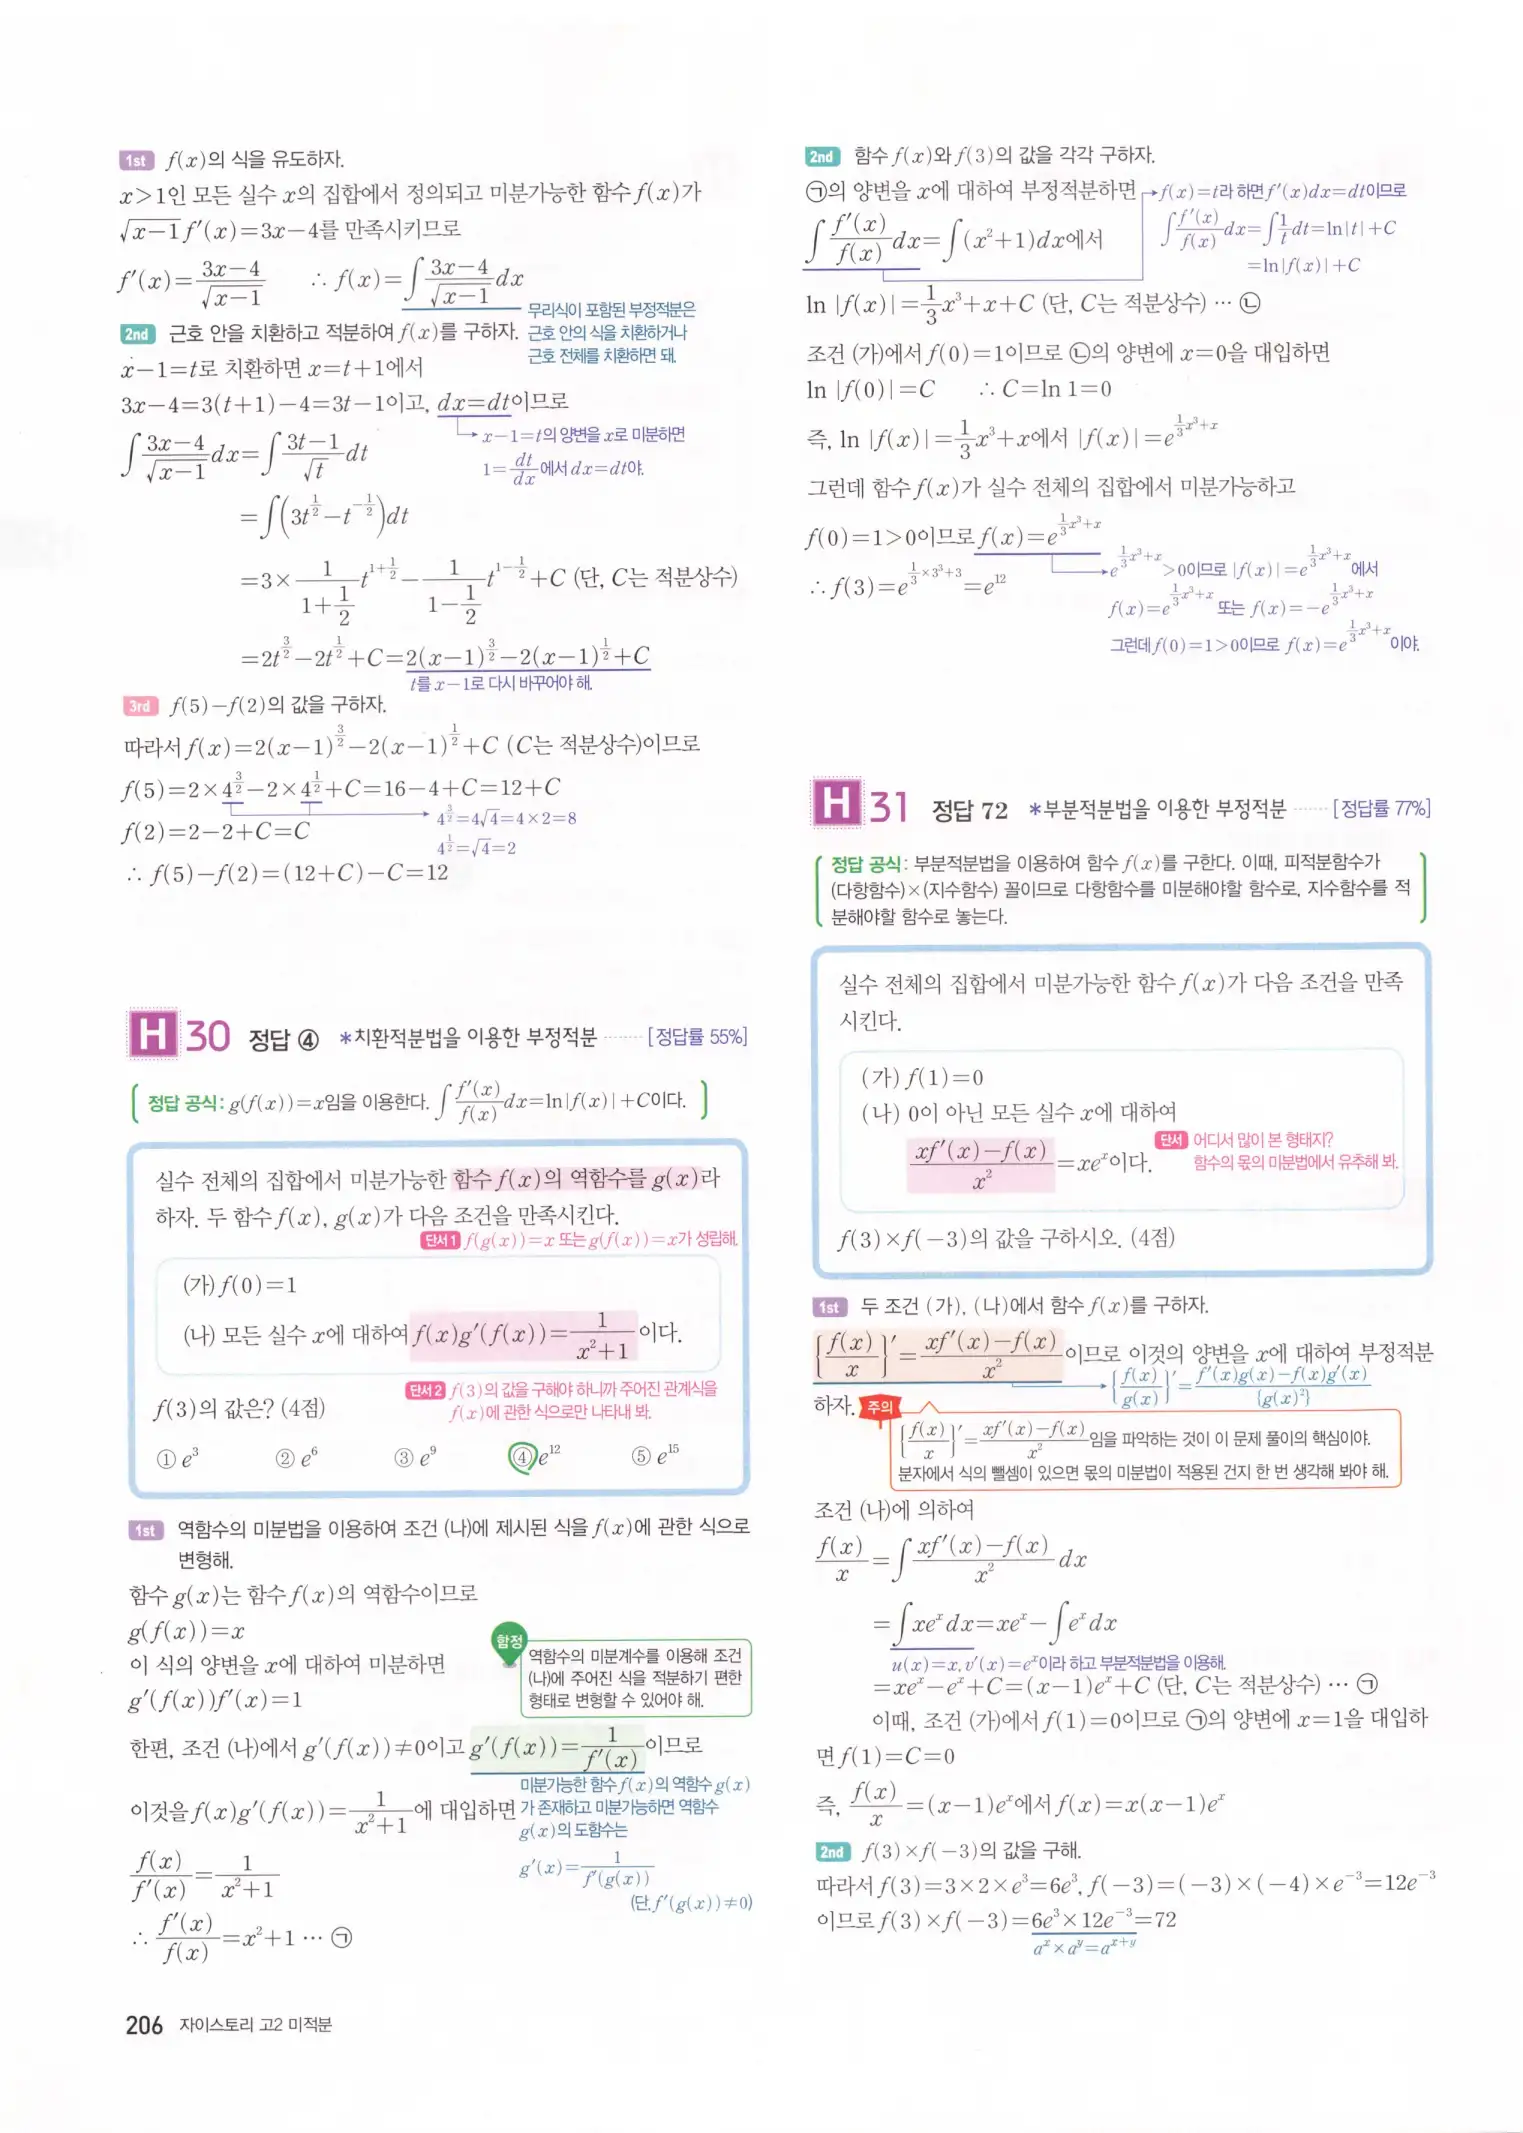 1st f(x)의 식을 유도하자.
x>1인 모든 실수 x의 집합에서 정의되고 미분가능한 함수 f(x)가
√(x-1) f'(x)=3x-4를 만족시키므로
f'(x)=(3x-4)/√(x-1) ∴ f(x)=∫(3x-4)/√(x-1) dx
무리식이 포함된 부정적분은
2nd 근호 안을 치환하고 적분하여 f(x)를 구하자. 근호 안의 식을 치환하거나
근호 전체를 치환하면 돼.
x-1=t로 치환하면 x=t+1에서
3x-4=3(t+1)-4=3t-1이고, dx=dt이므로
→ x-1=t의 양변을 x로 미분하면
1=dt/dx에서 dx=dt야.
∫(3x-4)/√(x-1) dx=∫(3t-1)/√t dt
=∫(3t^(1/2)-t^(-1/2))dt
=3×1/(1+1/2) t^(1+1/2)-1/(1-1/2) t^(1-1/2)+C (단, C는 적분상수)
=2t^(3/2)-2t^(1/2)+C=2(x-1)^(3/2)-2(x-1)^(1/2)+C
t를 x-1로 다시 바꾸어야 해.
3rd f(5)-f(2)의 값을 구하자.
따라서 f(x)=2(x-1)^(3/2)-2(x-1)^(1/2)+C (C는 적분상수)이므로
f(5)=2×4^(3/2)-2×4^(1/2)+C=16-4+C=12+C
→ 4^(3/2)=4√4=4×2=8
f(2)=2-2+C=C
4^(1/2)=√4=2
∴ f(5)-f(2)=(12+C)-C=12
H 30 정답 ④ *치환적분법을 이용한 부정적분 ······· [정답률 55%]
정답 공식: g(f(x))=x임을 이용한다. ∫f'(x)/f(x) dx=ln|f(x)|+C이다.
실수 전체의 집합에서 미분가능한 함수 f(x)의 역함수를 g(x)라
하자. 두 함수 f(x), g(x)가 다음 조건을 만족시킨다.
단서1 f(g(x))=x 또는 g(f(x))=x가 성립해.
(가) f(0)=1
(나) 모든 실수 x에 대하여 f(x)g'(f(x))=1/(x²+1)이다.
단서2 f(3)의 값을 구해야 하니까 주어진 관계식을
f(x)에 관한 식으로만 나타내 봐.
f(3)의 값은? (4점)
① e³ ② e⁶ ③ e⁹ ④ e¹² ⑤ e¹⁵
1st 역함수의 미분법을 이용하여 조건 (나)에 제시된 식을 f(x)에 관한 식으로
변형해.
함수 g(x)는 함수 f(x)의 역함수이므로
g(f(x))=x
이 식의 양변을 x에 대하여 미분하면
g'(f(x))f'(x)=1
함정 역함수의 미분계수를 이용해 조건
(나)에 주어진 식을 적분하기 편한
형태로 변형할 수 있어야 해.
한편, 조건 (나)에서 g'(f(x))≠0이고 g'(f(x))=1/f'(x)이므로
이것을 f(x)g'(f(x))=1/(x²+1)에 대입하면
미분가능한 함수 f(x)의 역함수 g(x)
가 존재하고 미분가능하면 역함수
g(x)의 도함수는
g'(x)=1/f'(g(x))
(단, f'(g(x))≠0)
f(x)/f'(x)=1/(x²+1)
∴ f'(x)/f(x)=x²+1 ··· ㉠
206 자이스토리 고2 미적분
2nd 함수 f(x)와 f(3)의 값을 각각 구하자.
㉠의 양변을 x에 대하여 부정적분하면
→ f(x)=t라 하면 f'(x)dx=dt이므로
∫f'(x)/f(x) dx=∫1/t dt=ln|t|+C
=ln|f(x)|+C
∫f'(x)/f(x) dx=∫(x²+1)dx에서
ln |f(x)|=1/3 x³+x+C (단, C는 적분상수) ··· ㉡
조건 (가)에서 f(0)=1이므로 ㉡의 양변에 x=0을 대입하면
ln |f(0)|=C ∴ C=ln 1=0
즉, ln |f(x)|=1/3 x³+x에서 |f(x)|=e^(1/3 x³+x)
그런데 함수 f(x)가 실수 전체의 집합에서 미분가능하고
f(0)=1>0이므로 f(x)=e^(1/3 x³+x)
∴ f(3)=e^(1/3×3³+3)=e¹²
→ e^(1/3 x³+x)>0이므로 |f(x)|=e^(1/3 x³+x)에서
f(x)=e^(1/3 x³+x) 또는 f(x)=-e^(1/3 x³+x)
그런데 f(0)=1>0이므로 f(x)=e^(1/3 x³+x)이야.
H 31 정답 72 *부분적분법을 이용한 부정적분 ······ [정답률 77%]
정답 공식: 부분적분법을 이용하여 함수 f(x)를 구한다. 이때, 피적분함수가
(다항함수)×(지수함수) 꼴이므로 다항함수를 미분해야할 함수로, 지수함수를 적
분해야할 함수로 놓는다.
실수 전체의 집합에서 미분가능한 함수 f(x)가 다음 조건을 만족
시킨다.
(가) f(1)=0
(나) 0이 아닌 모든 실수 x에 대하여
(xf'(x)-f(x))/x²=xeˣ이다.
단서 어디서 많이 본 형태지?
함수의 몫의 미분법에서 유추해 봐.
f(3)×f(-3)의 값을 구하시오. (4점)
1st 두 조건 (가), (나)에서 함수 f(x)를 구하자.
{f(x)/x}'=(xf'(x)-f(x))/x²이므로 이것의 양변을 x에 대하여 부정적분
→ {f(x)/g(x)}'=(f'(x)g(x)-f(x)g'(x))/{g(x)²}
하자.
주의 {f(x)/x}'=(xf'(x)-f(x))/x²임을 파악하는 것이 이 문제 풀이의 핵심이야.
분자에서 식의 뺄셈이 있으면 몫의 미분법이 적용된 건지 한 번 생각해 봐야 해.
조건 (나)에 의하여
f(x)/x=∫(xf'(x)-f(x))/x² dx
=∫xeˣdx=xeˣ-∫eˣdx
u(x)=x, v'(x)=eˣ이라 하고 부분적분법을 이용해.
=xeˣ-eˣ+C=(x-1)eˣ+C (단, C는 적분상수) ··· ㉠
이때, 조건 (가)에서 f(1)=0이므로 ㉠의 양변에 x=1을 대입하
면 f(1)=C=0
즉, f(x)/x=(x-1)eˣ에서 f(x)=x(x-1)eˣ
2nd f(3)×f(-3)의 값을 구해.
따라서 f(3)=3×2×e³=6e³, f(-3)=(-3)×(-4)×e⁻³=12e⁻³
이므로 f(3)×f(-3)=6e³×12e⁻³=72
aˣ×aʸ=aˣ⁺ʸ